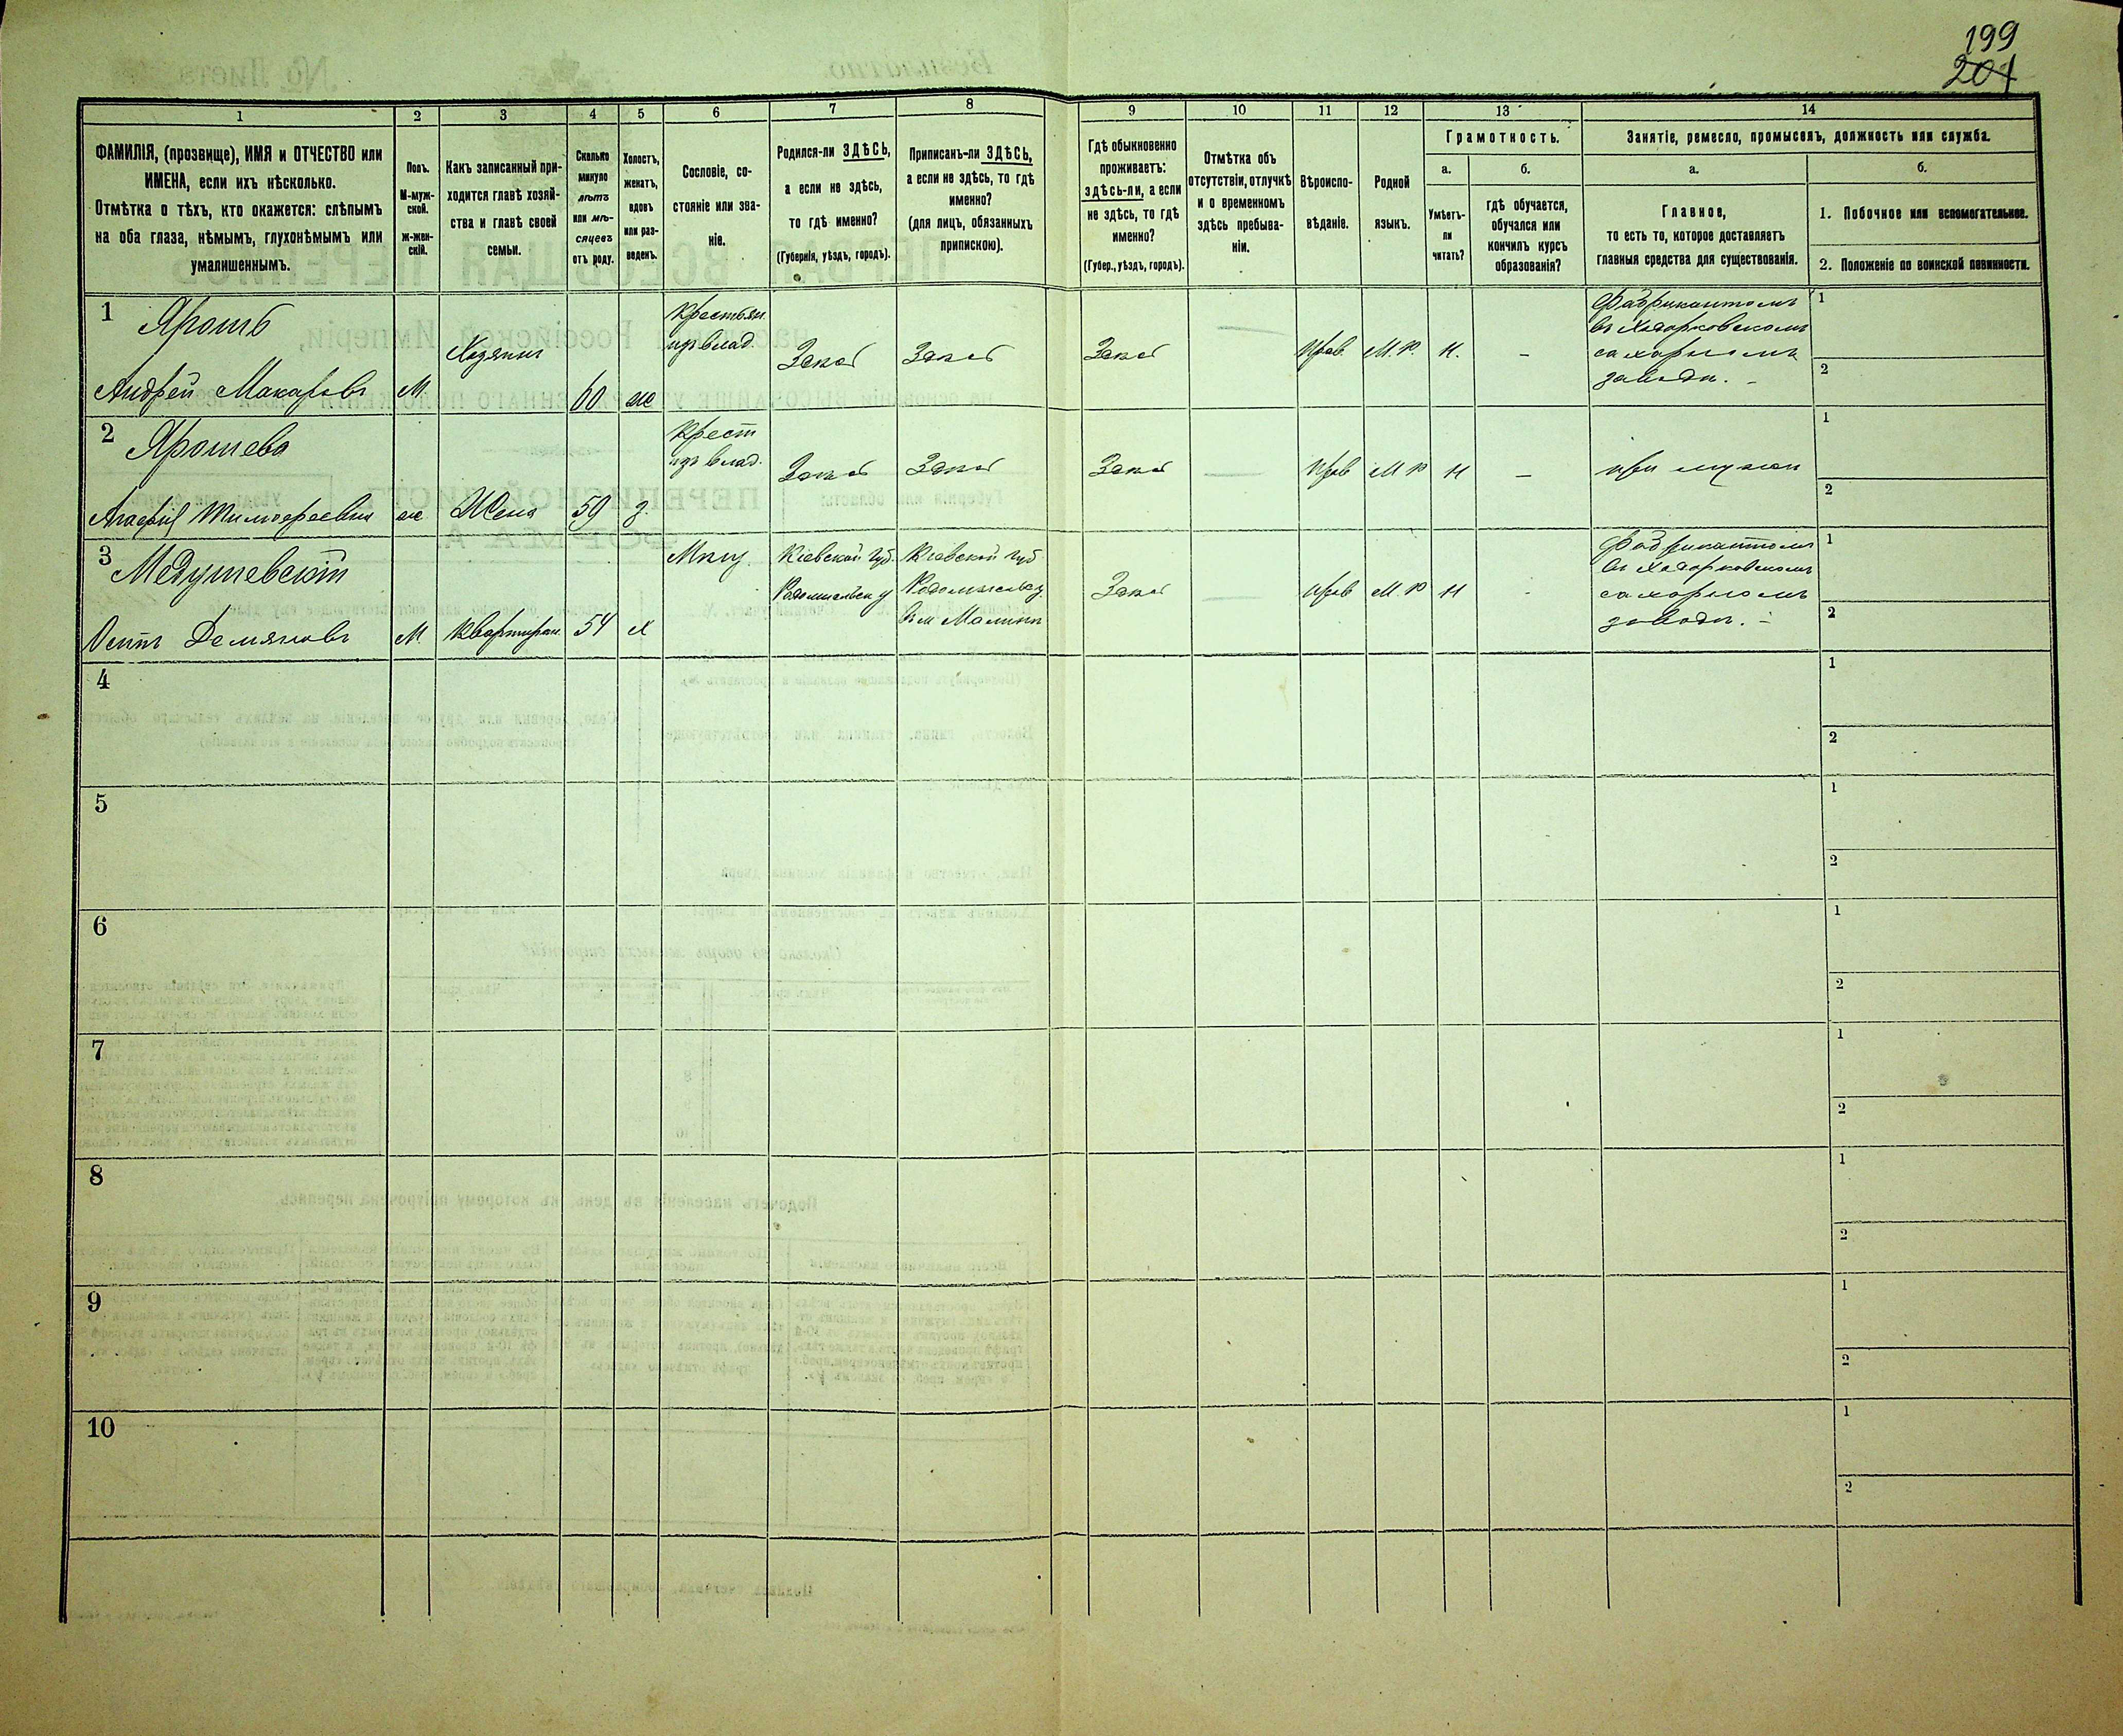 199
201
1
2
3
4
5
6
7
8
9
10
11
12
13
14
ФАМИЛІЯ, (прозвище), ИМЯ и ОТЧЕСТВО или
ИМЕНА, если ихъ нѣсколько.
Отмѣтка о тѣхъ, кто окажется: слѣпымъ
на оба глаза, нѣмымъ, глухонѣмымъ или
умалишеннымъ.
Полъ.
М-муж-
ской.
Ж-жен-
скій.
Какъ записанный при-
ходится главѣ хозяй-
ства и главѣ своей
семьи.
Сколько
минуло
лѣтъ
или мѣ-
сяцевъ
отъ роду.
Холостъ,
женатъ,
вдовъ
или раз-
веденъ.
Сословіе, со-
стояніе или зва-
ніе.
Родился-ли ЗДѢСЬ,
а если не здѣсь,
то гдѣ именно?
(Губернія, уѣздъ, городъ).
Приписанъ-ли ЗДѢСЬ,
а если не здѣсь, то гдѣ
именно?
(для лицъ, обязанныхъ
припискою).
Гдѣ обыкновенно
проживаетъ:
здѣсь-ли, а если
не здѣсь, то гдѣ
именно?
(Губер., уѣздъ, городъ).
Отмѣтка объ
отсутствіи, отлучкѣ
и о временномъ
здѣсь пребыва-
ніи.
Вѣроиспо-
вѣданіе.
Родной
языкъ.
Грамотность.
а.
Умѣетъ-
ли
читать?
б.
гдѣ обучается,
обучался или
кончилъ курсъ
образованія?
Занятіе, ремесло, промыселъ, должность или служба.
а.
Главное,
то есть то, которое доставляетъ
главныя средства для существованія.
б.
1. Побочное или вспомогательное.
2. Положеніе по воинской повинности.
1
Ярошъ
Андрей Макаровъ
М
Хозяинъ
60
ж
Крестьян.
изъ влад.
Здесь
Здесь
Здесь
—
Прав.
М. Р.
Н.
–
Фабрикантомъ
въ Ходорковскомъ
сахарномъ
заводѣ. –
1
2
2
Ярошева
Агафія Тимофеевна
ж
Жена
59
з.
Крест
изъ влад.
Здесь
Здесь
Здесь
—
Прав
М Р
Н
–
при мужѣ
1
2
3
Медушевскій
Осипъ Демяновъ
М.
Квартиран.
54
х
Мѣщ.
Кіевской Губ.
Радомысльск у
Кіевской Губ
Радомысльск у.
въ м Малинѣ
Здесь
—
Прав
М. Р
Н
-
Фабрикантомъ
въ Ходорковскомъ
сахарномъ
заводѣ. –
1
2
4
1
2
5
1
2
6
1
2
7
1
2
8
1
2
9
1
2
10
1
2